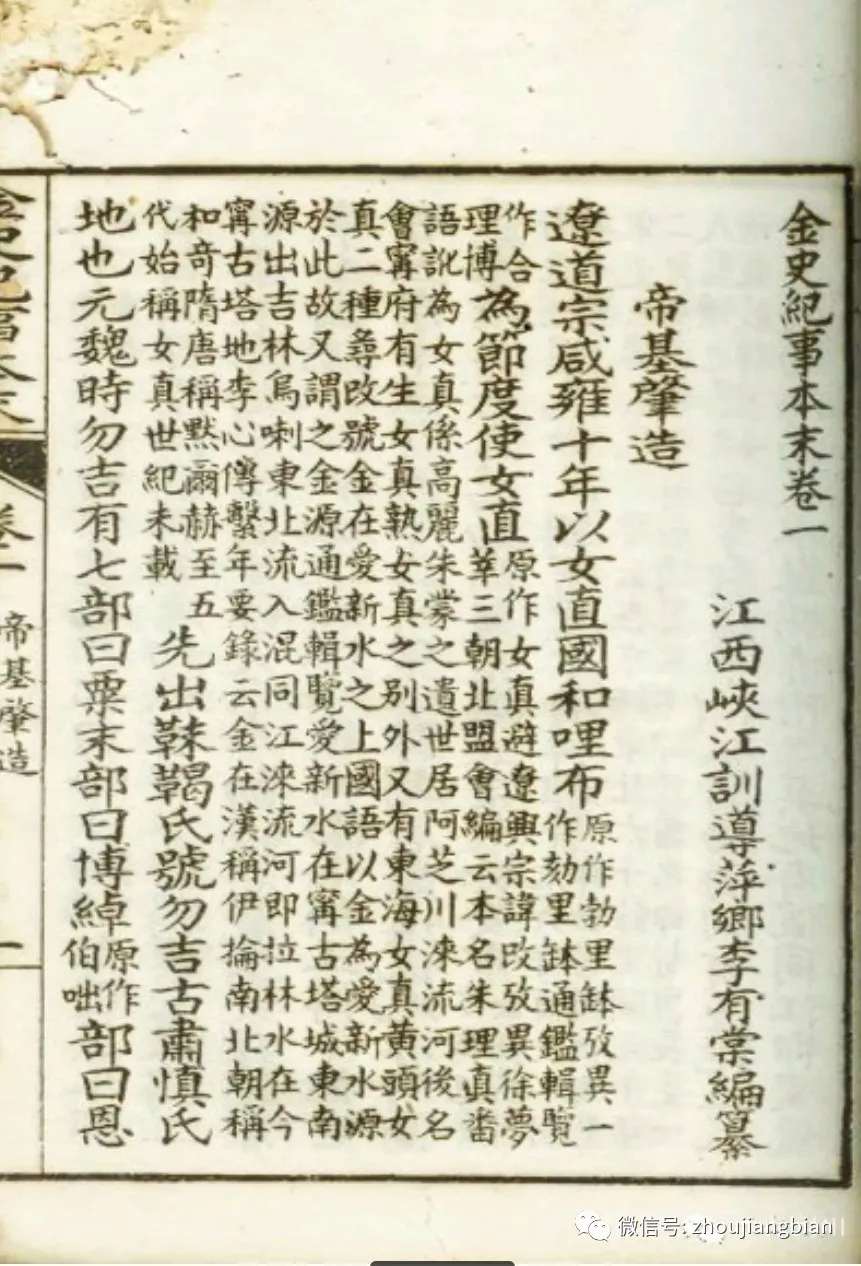 金史紀事本末卷一
江西峽江訓導萍鄉李有棠編纂
帝基肇造
遼道宗咸雍十年以女直國和哩布原作勃里鉢攷異一作劾里鉢通鑑輯覽
作合理博為節度使女直原作女真避遼興宗諱攺攷異徐夢莘三朝北盟會編云本名朱理真番
語訛為女真係高麗朱蒙之遺世居阿芝川淶流河後名
會寧府有生女真熟女真之別外又有東海女真黃頭女
真二種尋攺號金在愛新水之上國語以金為愛新水源
於此故又謂之金源通鑑輯覽愛新水在寧古塔城東南
源出吉林烏喇東北流入混同江淶流河即拉林水在今
寧古塔地李心傳繫年要錄云金在漢稱伊掄南北朝稱
和奇隋唐稱默爾赫至五代始稱女真世紀未載先出靺鞨氏號勿吉古肅慎氏
地也元魏時勿吉有七部曰粟末部曰博綽原作伯咄部曰恩
金史紀事本末
卷一
帝基肇造
一
微信号: zhoujiangbian